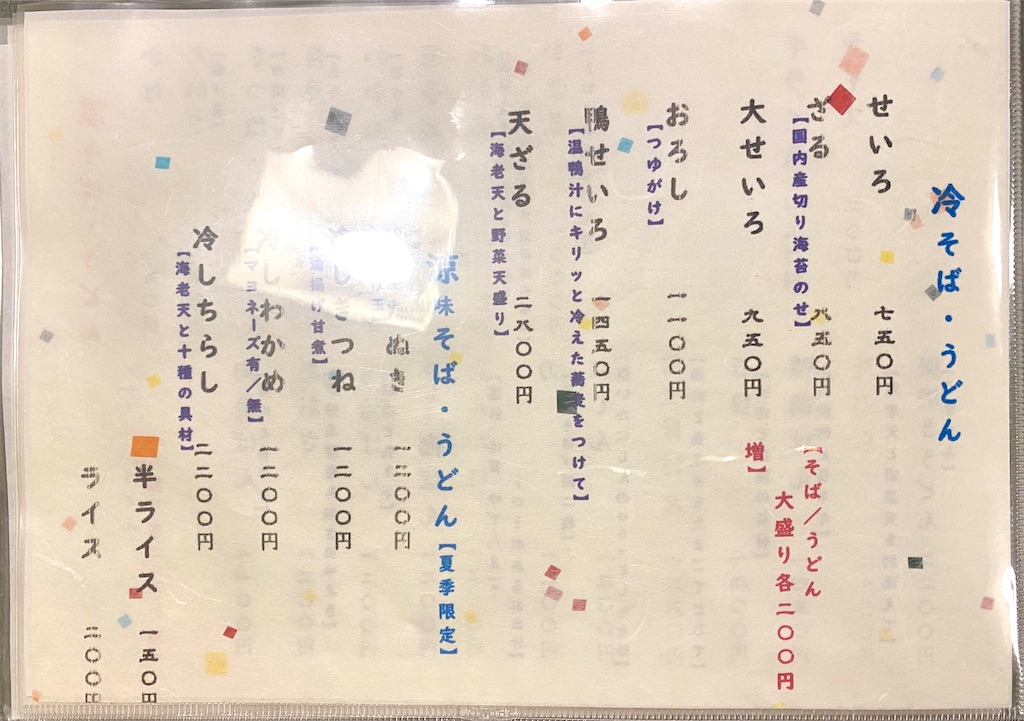 冷そば・うどん
せいろ 七五〇円
ざる 八五〇円
【国内産切り海苔のせ】
大せいろ 九五〇円
【そば/うどん
大盛り各二〇〇円
増】
おろし 一一〇〇円
【つゆがけ】
鴨せいろ 一四五〇円
【温鴨汁にキリッと冷えた蕎麦をつけて】
天ざる 二八〇〇円
【海老天と野菜天盛り】
涼味そば・うどん【夏季限定】
ぬき 一二〇〇円
きつね 一二〇〇円
油揚げ甘煮】
しわかめ 一二〇〇円
【マヨネーズ有/無】
冷しちらし 二二〇〇円
【海老天と十種の具材】
半ライス 一五〇円
ライス 二〇〇円